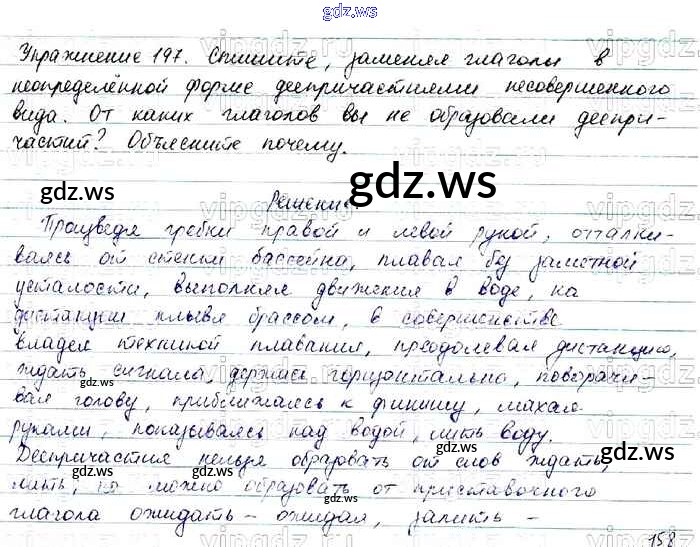 gdz.ws
Упражнение 197. Спишите, заменяя глаголы в
неопределённой форме деепричастиями несовершенного
вида. От каких глаголов вы не образовали деепри-
частий? Объясните почему.
gdz.ws
gdz.ws
Решение
Произведя гребки правой и левой рукой, отталки-
ваясь от стенки бассейна, плавая без заметной
усталости, выполняя движения в воде, на
дистанции плывя брассом, в совершенстве
владея техникой плавания, преодолевая дистанцию,
ждать сигнала, держась горизонтально, поворачи-
вая голову, приближаясь к финишу, махая
руками, показываясь над водой, пить воду.
Деепричастия нельзя образовать от слов ждать,
пить, но можно образовать от приставочного
глагола ожидать - ожидая, запить -
gdz.ws
gdz.ws
gdz.ws
158